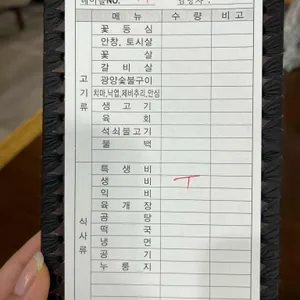 테이블NO.
메 뉴 수 량 비 고
고기류
꽃 등 심
안창, 토시살
꽃 살
갈 비 살
광양숯불구이
치마,낙엽,제비추리,안심
생 고 기
육 회
석쇠불고기
불 백
식사류
특 생 비
생 비 ㅜ
익 비
육 개 장
곰 탕
떡 국
냉 면
공 기
누 룽 지